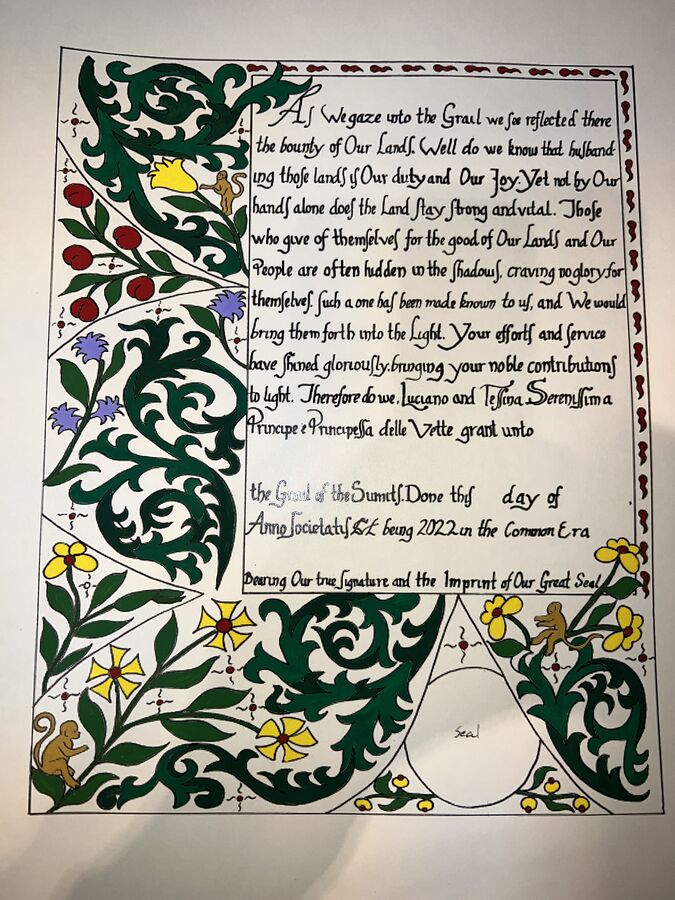 As We gaze into the Grail we see reflected there
the bounty of Our Lands. Well do we know that husband
ing those lands is Our duty and Our Joy. Yet not by Our
hands alone does the Land stay strong and vital. Those
who give of themselves for the good of Our Lands and Our
People are often hidden in the shadows, craving no glory for
themselves. Such a one has been made known to us, and We would
bring them forth into the Light. Your efforts and service
have shined gloriously, bringing your noble contributions
to light. Therefore do we, Luciano and Tessina, Serenissima
Principe e Principessa delle Vette grant unto
the Grail of the Sumits. Done this day of
Anno Societatis being 2022 in the Common Era
Bearing Our true signature and the Imprint of Our Great Seal
Seal